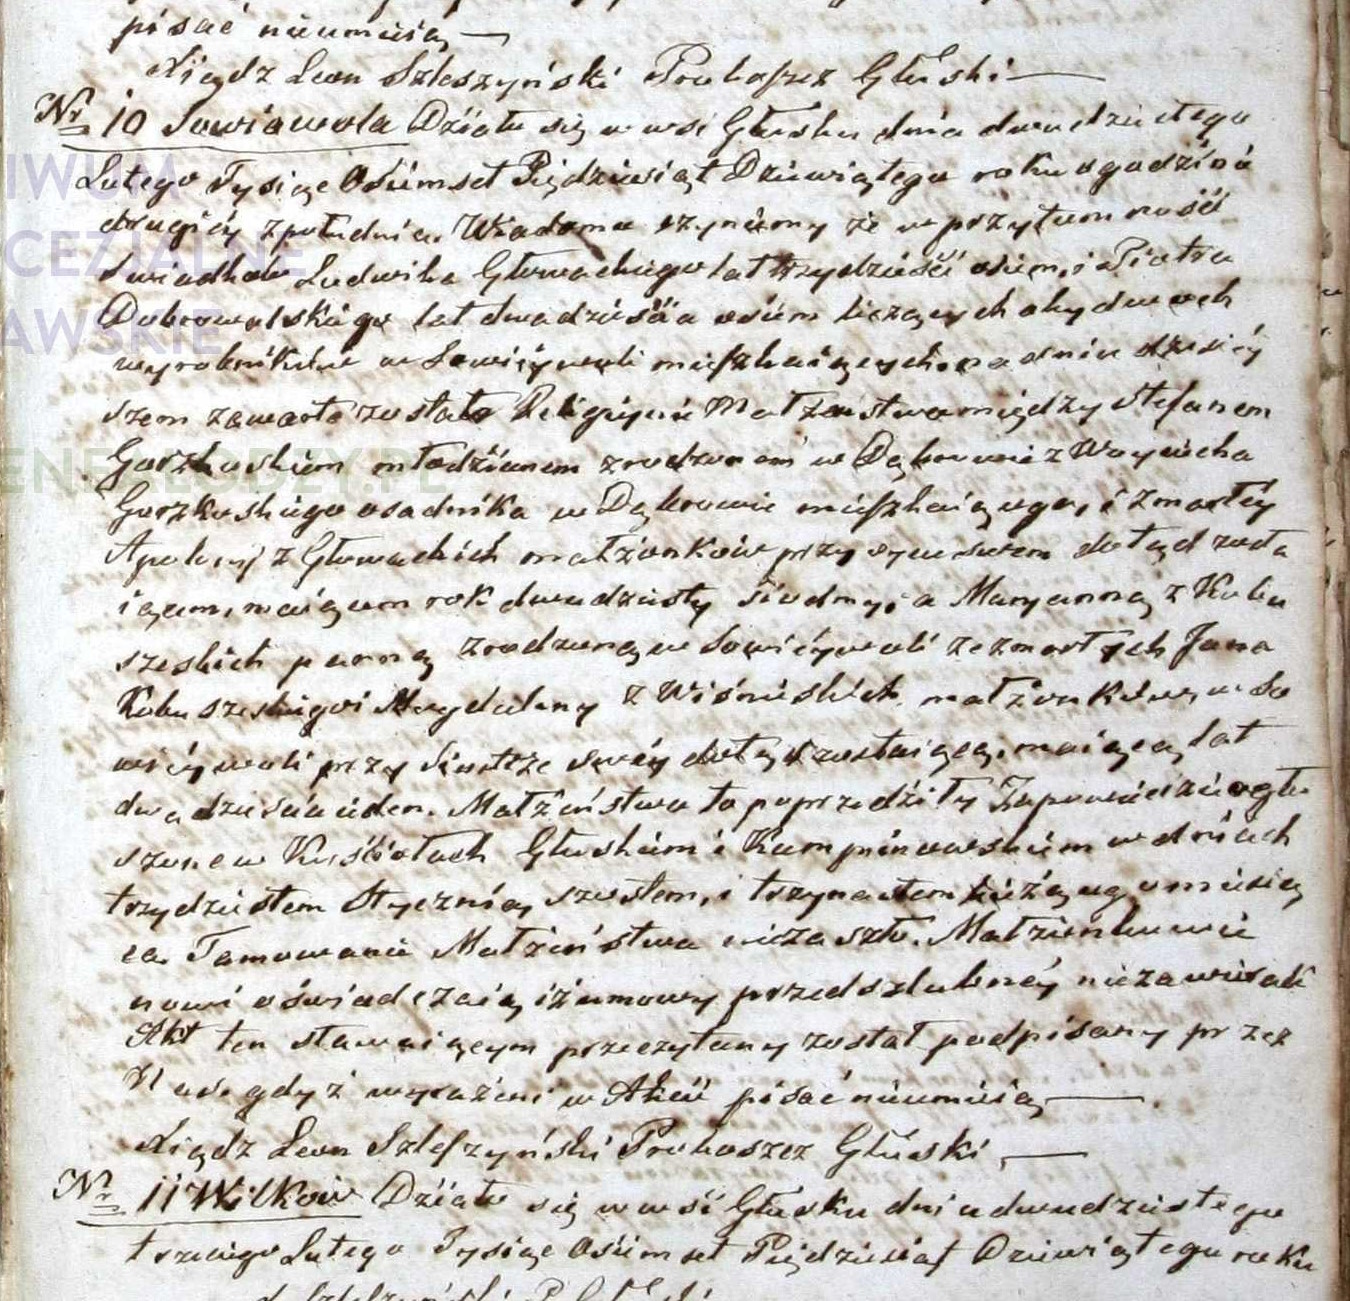 pisać nieumieią
Xiądz Leon Szleszyński Proboszcz Głuski
Nr 10 Sowiawola Działo się w wsi Głusku dnia dwudziestego
Lutego Tysiąc Ośmset Pięćdziesiąt Dziewiątego roku o godzinie
drugiéy z południa. Wiadomo czyniemy że w przytomności
Swiadków Ludwika Głowackiego lat trzydzieści ośm, i Piotra
Dobrowolskiego lat dwadzieścia ośm liczących obydwoch
wyrobników w Sowiéywoli mięszkaiących, na dniu dzisiéy
szem zawarte zostało Religijne Małżeństwo między Stefanem
Gorzkoskiem młodzianem zrodzonem w Dąbrowie z Woyciecha
Gorzkoskiego osadnika w Dąbrowie mieszkaiącego, i zmarłéy
Apolonij z Głowackich małżonków przy oycu swem dotąd zosta
iącem, maiącem rok dwudziesty siodmy, a Maryanną z Kubu
szeskich panną zrodzoną w Sowiéywoli ze zmarłych Jana
Kubuszeskiego i Magdaleny z Wiśnieskich małżonków, w So
wiéywoli przy Siostrze swéy dotąd zostaiącą, maiącą lat
dwadzieścia ieden. Małżeństwo to poprzedziły Zapowiedzie ogło
szone w Kościołach Głuskim i Kampinowskiem w dniach
trzydziestem Stycznia, szostem, i trzynastem bieżącego miesią
ca. Tamowanie Małżeństwa niezaszło. Małżonkowie
nowi oświadczaią iż umowy przedślubnéy niezawierali
Akt ten stawaiącym przeczytany został podpisany przez
Nas gdyż wyrażeni w Akcie pisać nieumieią
Xiądz Leon Szleszyński Proboszcz Głuski
Nr 11 Wilkow Działo się w wsi Głusku dnia dwudziestego
trzeciego Lutego Tysiąc Ośmset Pięćdziesiąt Dziewiątego roku